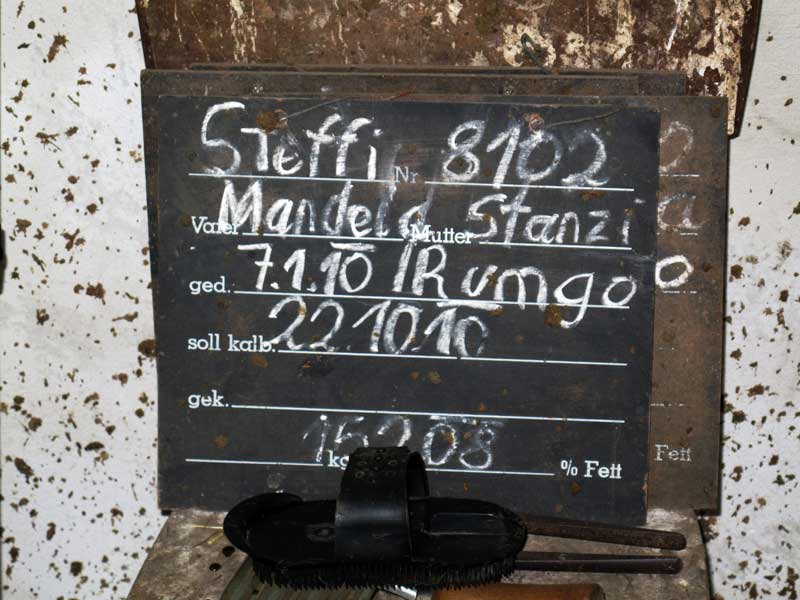 Steffi Nr. 8102
Vater Mandela Mutter Stanzi
ged. 7.1.10 / Rumgo
soll kalb. 22.10.10
gek.
15208 kg % Fett
2
a
o
Fett